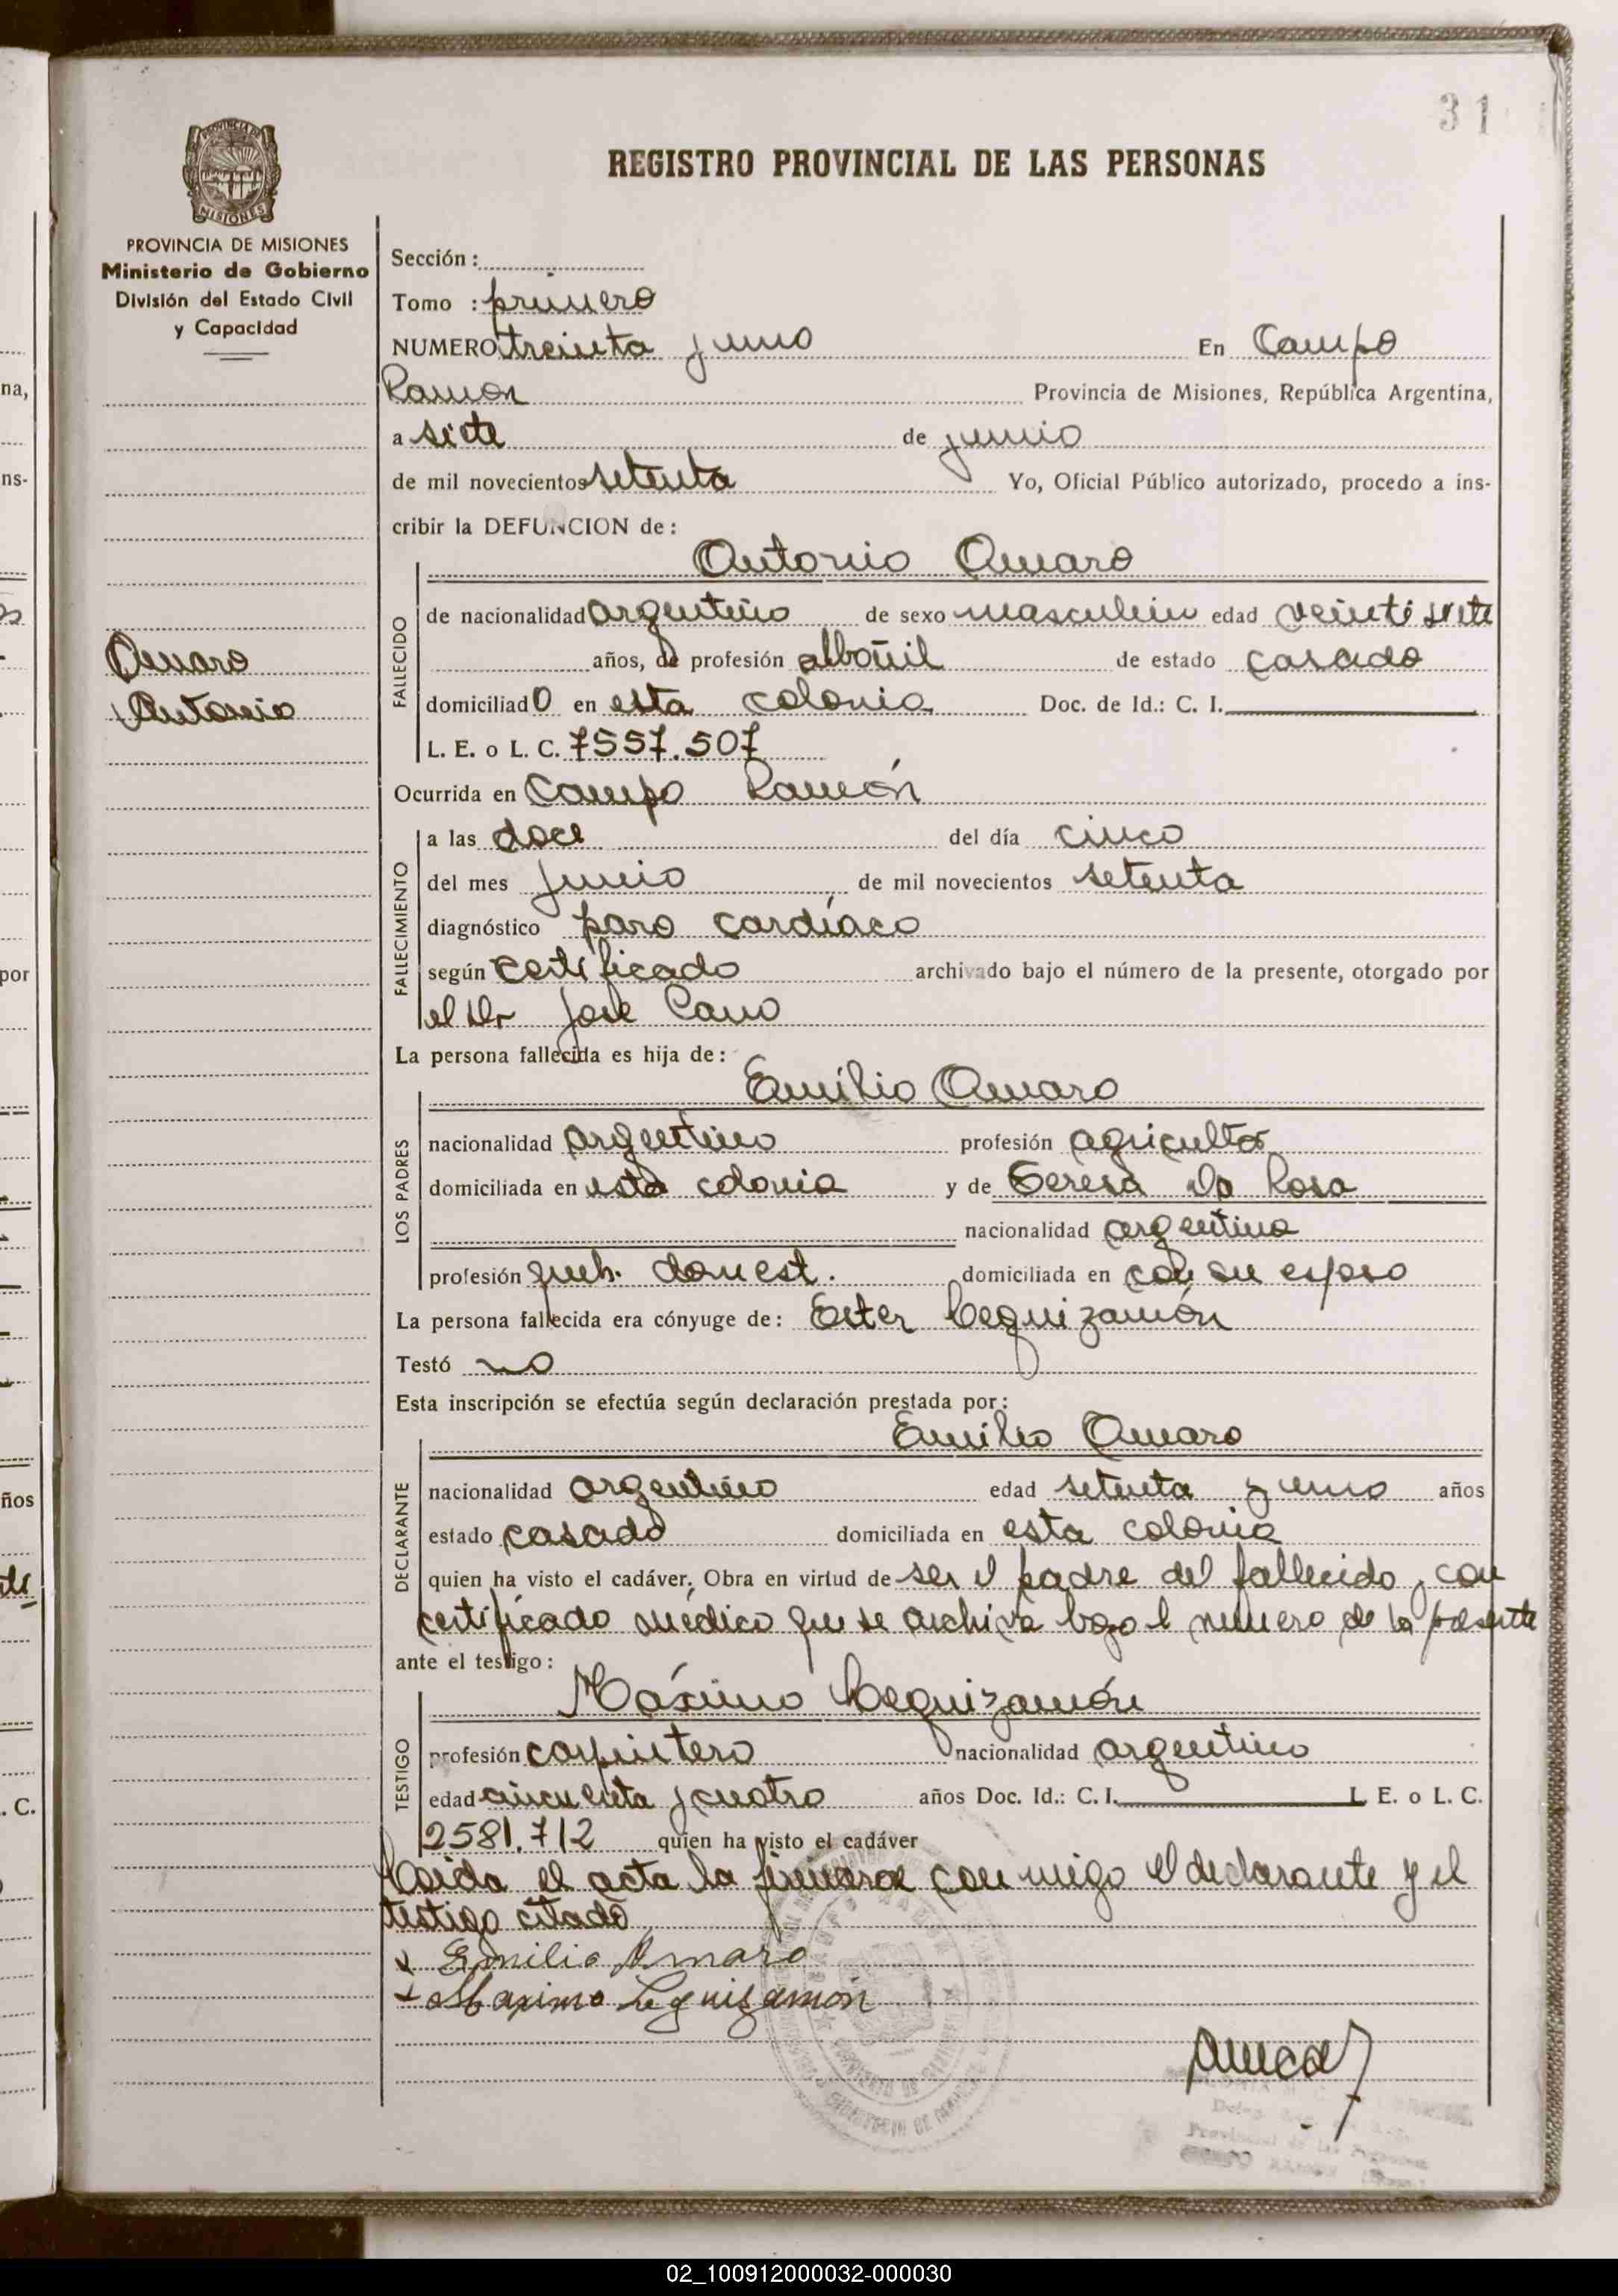 31
REGISTRO PROVINCIAL DE LAS PERSONAS
PROVINCIA DE MISIONES
MISIONES
PROVINCIA DE MISIONES
Ministerio de Gobierno
División del Estado Civil
y Capacidad
Sección :
Tomo : primero
NUMERO treinta y uno En Campo
Ramon Provincia de Misiones, República Argentina,
a siete de junio
de mil novecientos setenta Yo, Oficial Público autorizado, procedo a ins-
cribir la DEFUNCION de :
Antonio Amaro
Amaro
Antonio
FALLECIDO
de nacionalidad argentino de sexo masculino edad veinti siete
años, de profesión albañil de estado casado
domiciliado en esta colonia Doc. de Id.: C. I.
L. E. o L. C. 7557.507
Ocurrida en Campo Ramón
FALLECIMIENTO
a las doce del día cinco
del mes junio de mil novecientos setenta
diagnóstico paro cardíaco
según certificado archivado bajo el número de la presente, otorgado por
el Dr José Cano
La persona fallecida es hija de :
Emilio Amaro
LOS PADRES
nacionalidad argentino profesión agricultor
domiciliada en esta colonia y de Teresa Da Rosa
nacionalidad argentina
profesión queh. domest. domiciliada en con su esposo
La persona fallecida era cónyuge de : Ester Leguizamón
Testó no
Esta inscripción se efectúa según declaración prestada por :
Emilio Amaro
DECLARANTE
nacionalidad argentino edad setenta y uno años
estado casado domiciliada en esta colonia
quien ha visto el cadáver. Obra en virtud de ser el padre del fallecido, con
certificado médico que se archiva bajo el numero de la presente
ante el testigo :
Máximo Leguizamón
TESTIGO
profesión carpintero nacionalidad argentino
edad cincuenta y cuatro años Doc. Id.: C. I. L. E. o L. C.
2581.712 quien ha visto el cadáver
Leida el acta la firmara con migo el declarante y el
testigo citado
x Emilio Amaro
x Maximo Leguizamón
na,
ns-
por
ños
. C.
02_100912000032-000030